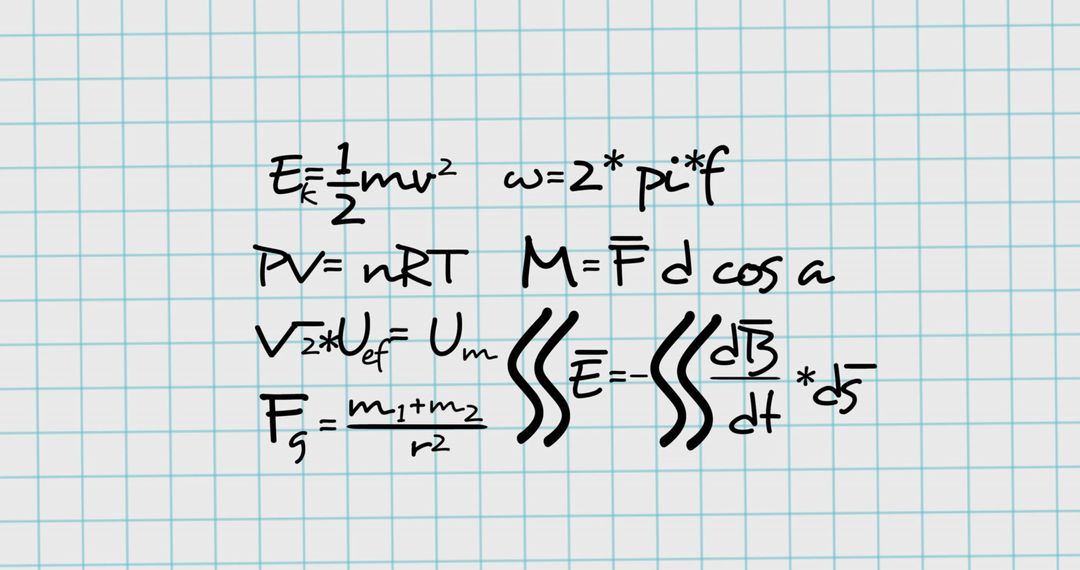 Eₖ=1/2 mv² ω=2* pi*f
PV= nRT M=F̿ d cos a
√2*U_ef= U_m ∬E̅=-∬dB̅/dt *ds̅
F_g=m₁+m₂/r²